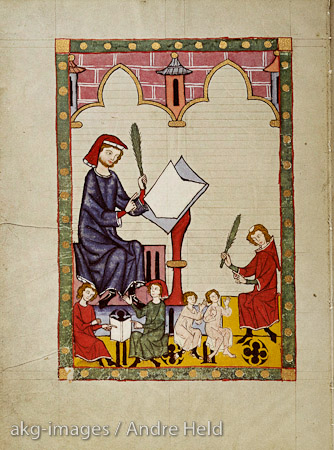 akg-images / Andre Held